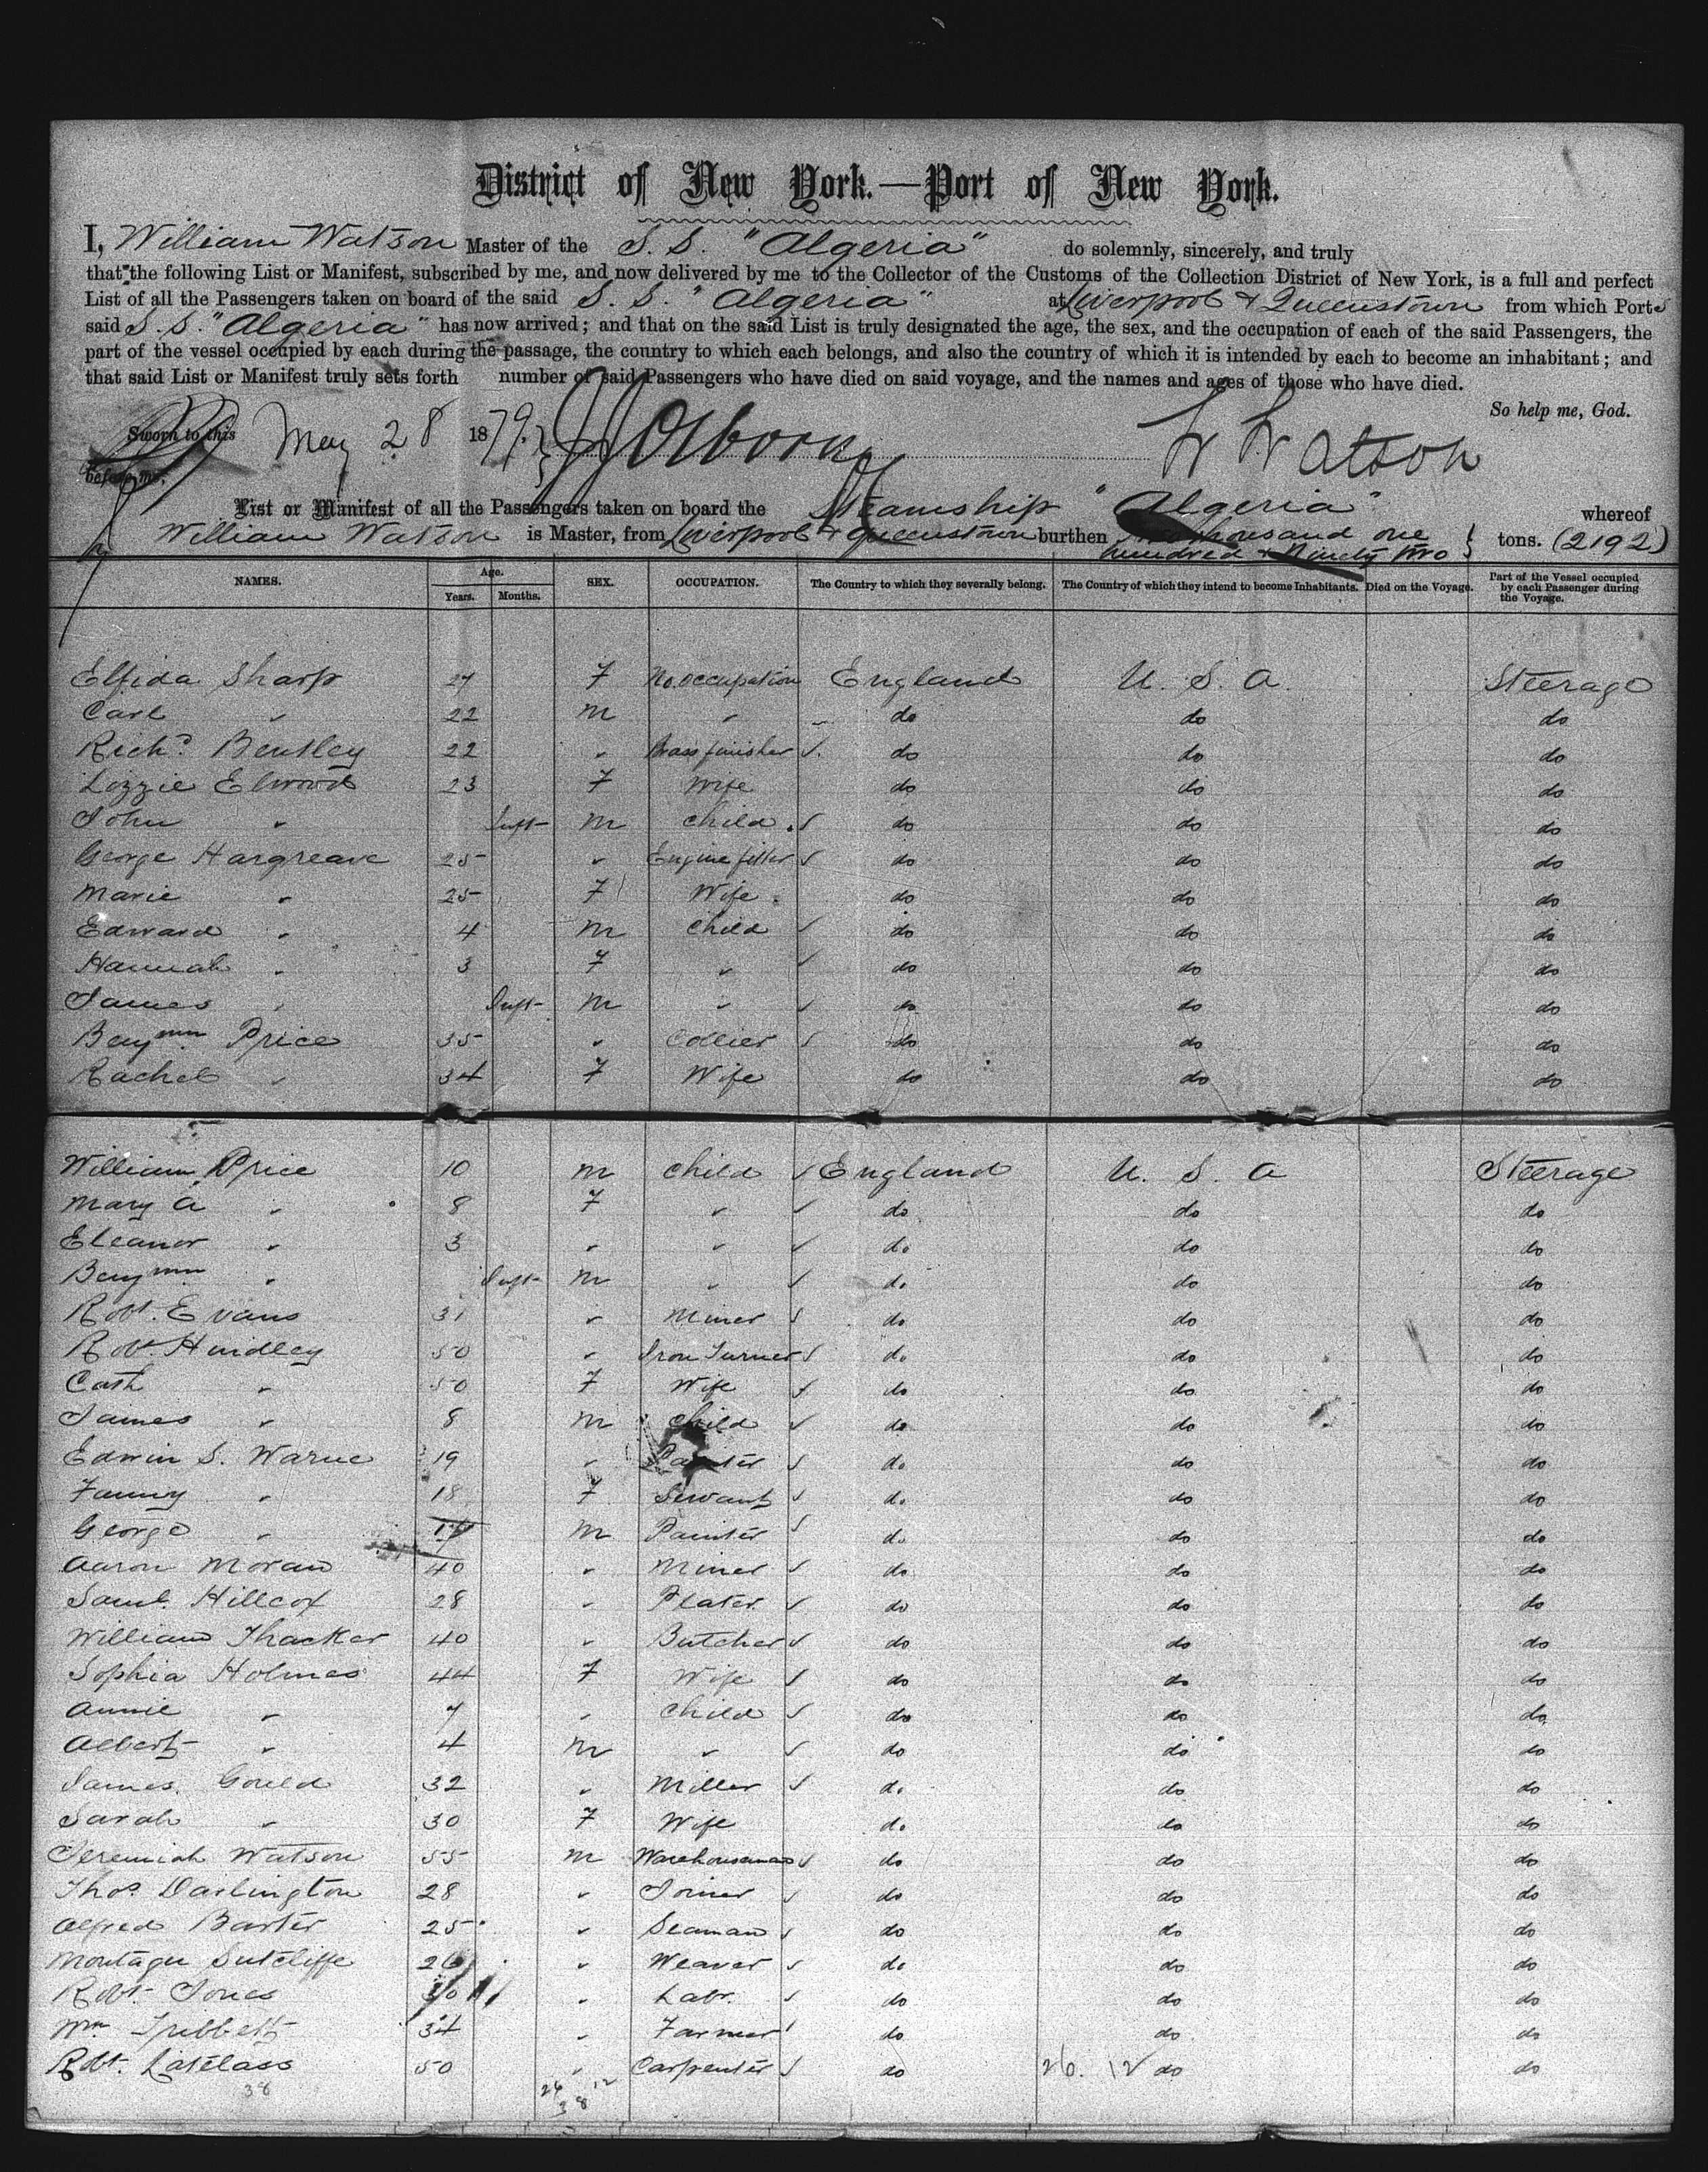 District of New York.—Port of New York.
I, William Watson Master of the S. S. "Algeria" do solemnly, sincerely, and truly
that the following List or Manifest, subscribed by me, and now delivered by me to the Collector of the Customs of the Collection District of New York, is a full and perfect
List of all the Passengers taken on board of the said S. S. "Algeria" at Liverpool & Queenstown from which Ports
said S. S. "Algeria" has now arrived; and that on the said List is truly designated the age, the sex, and the occupation of each of the said Passengers, the
part of the vessel occupied by each during the passage, the country to which each belongs, and also the country of which it is intended by each to become an inhabitant; and
that said List or Manifest truly sets forth number of said Passengers who have died on said voyage, and the names and ages of those who have died.
So help me, God.
Sworn to this May 28 1879. W Watson
before me,
List or Manifest of all the Passengers taken on board the Steamship "Algeria" whereof
William Watson is Master, from Liverpool & Queenstown burthen thousand one hundred & Ninety two tons. (2192)
NAMES. Age. Years. Months. SEX. OCCUPATION. The Country to which they severally belong. The Country of which they intend to become Inhabitants. Died on the Voyage. Part of the Vessel occupied by each Passenger during the Voyage.
Elfida Sharp 27 F No occupation England U. S. A. Steerage
Carl " 22 M " do do do
Richd. Bentley 22 " Brass finisher do do do
Lizzie Elwood 23 F Wife do do do
John " Inft M child do do do
George Hargreave 25 " Engine fitter do do do
Marie " 25 F Wife do do do
Edward " 4 M child do do do
Hannah " 3 F " do do do
James " Inft M " do do do
Benjmn. Price 35 " Collier do do do
Rachel " 34 F Wife do do do
William Price 10 M child England U. S. A Steerage
Mary A " 8 F " do do do
Eleanor " 3 " " do do do
Benjmn " Inft M " do do do
Robt. Evans 31 " Miner do do do
Robt. Hindley 50 " Iron Turner do do do
Cath " 50 F Wife do do do
James " 8 M child do do do
Edwin S. Warne 19 " Painter do do do
Fanny " 18 F Servant do do do
George " M Painter do do do
Aaron Moran 40 " Miner do do do
Saml. Hillcox 28 " Plater do do do
William Thacker 40 " Butcher do do do
Sophia Holmes 44 F Wife do do do
Annie " 7 " Child do do do
Albert " 4 M " do do do
James Gould 32 " Miller do do do
Sarah " 30 F Wife do do do
Jeremiah Watson 55 M Warehouseman do do do
Thos. Darlington 28 " Joiner do do do
Alfred Baxter 25 " Seaman do do do
Montagu Sutcliffe 26 " Weaver do do do
Robt. Jones 30 " Labr. do do do
Wm. Tribbett 34 " Farmer do do do
Robt. Latelass 50 " Carpenter do 26. 12 do do
38 26 12
38